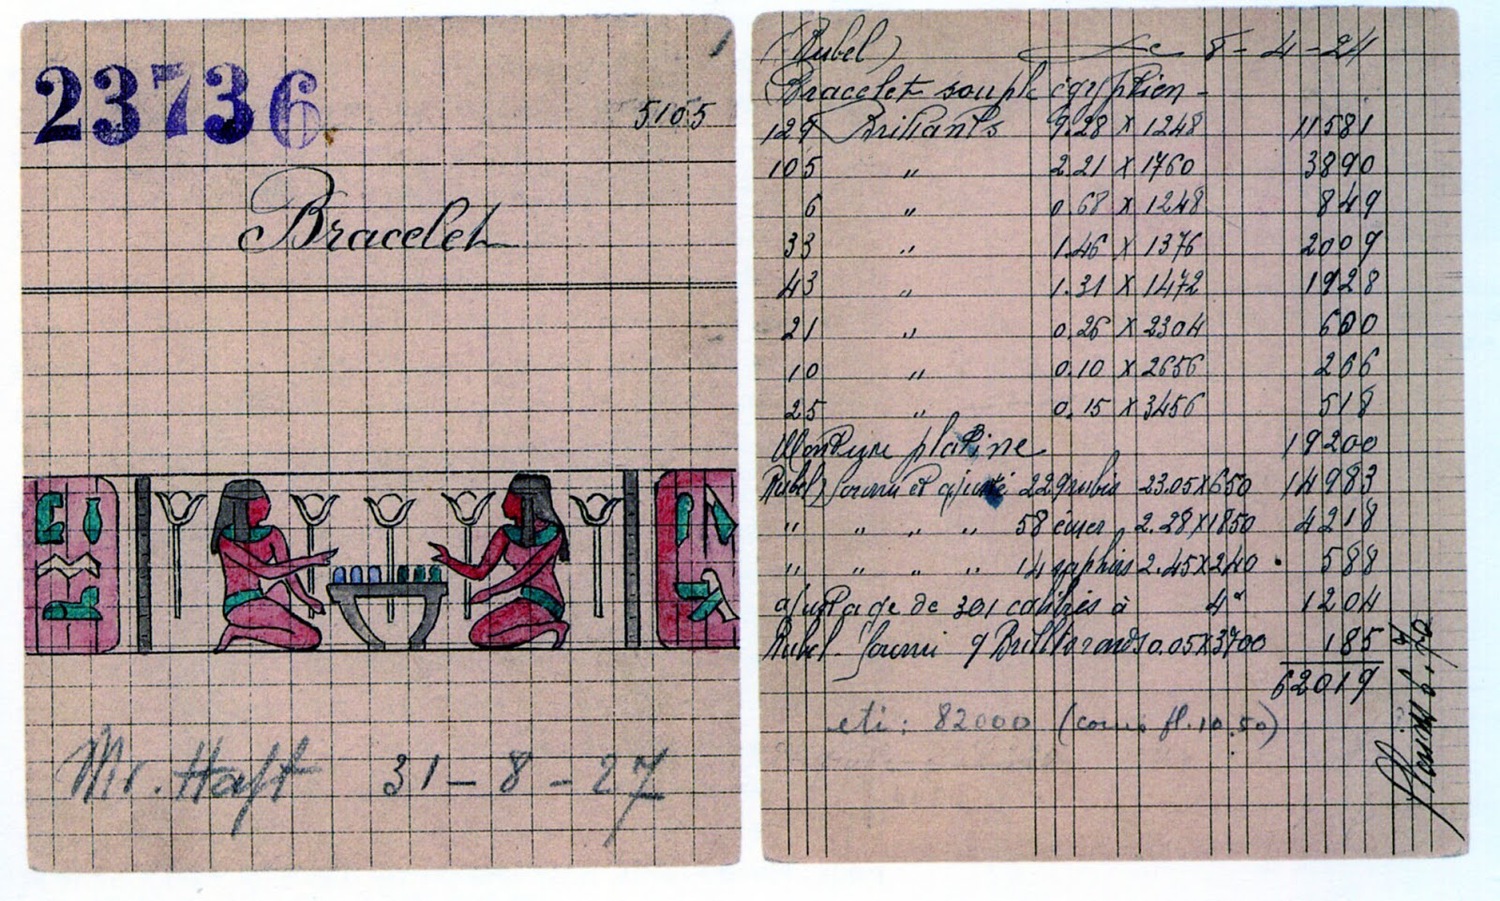 23736
5105
Bracelet
Mr. Haft 31-8-27
(Rubel) 8-4-24
Bracelet souple égyptien -
129 Brillants 9.28 x 1248 11581
105 " 2.21 x 1760 3890
6 " 0.68 x 1248 849
33 " 1.46 x 1376 2009
43 " 1.31 x 1472 1928
21 " 0.26 x 2304 600
10 " 0.10 x 2656 266
25 " 0.15 x 3456 518
Monture platine 19200
Rubel) fourni et ajusté 229 rubis 23.05x650 14983
" " " " 58 émer 2.28x1850 4218
" " " " 14 saphirs 2.45x240 588
ajustage de 301 calibrés à 4 1204
Rubel fourni 9 Brill 0.05x3700 185
62019
eti: 82000 (cours fl. 10.50)